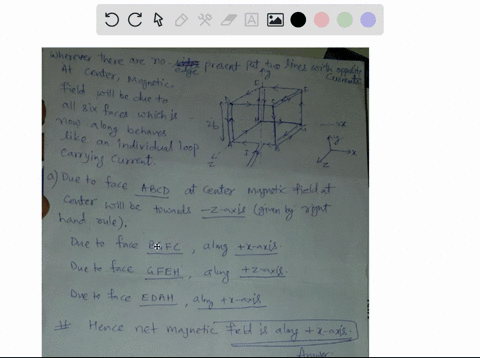 Wherever there are no edge present put two lines with opposite
currents.
At center, magnetic
field will be due to
all six faces which is
now along behaves
like an individual loop
carrying current.
2b
x
y
z
a) Due to face ABCD at center magnetic field at
center will be towards -z-axis (given by right
hand rule).
Due to face BGFC, along +x-axis.
Due to face GFEH, along +z-axis.
Due to face EDAH, along +x-axis
# Hence net magnetic field is along +x-axis.
Answer